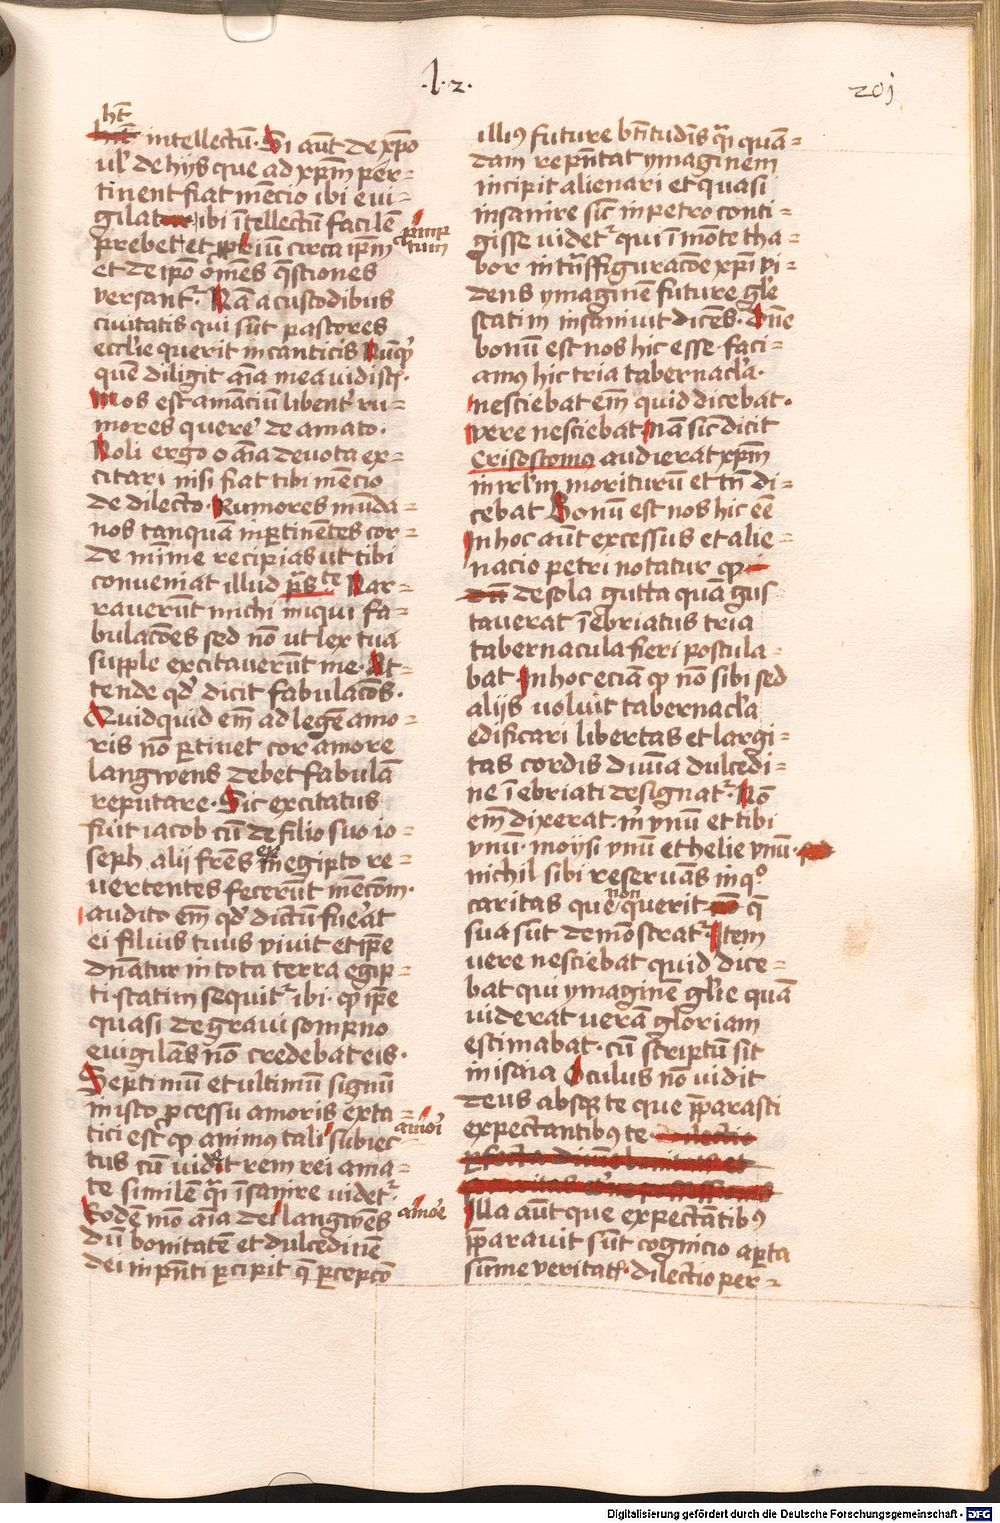 ·l·2·
201
hn̄t
intellectū· Si aūt de xp̄o
ul' de hijs que ad xp̄m per=
tinent fiat mēcio ibi evi=
gilat ibi ītellectū facilē
prebet et circa ip̄m
promp
tum
et de ip̄o om̄es q̄stiones
versant᷑· Nā a custodibus
civitatis qui sūt pastores
eccl'ie querit in canticis Nūq'
quē diligit aīa mea vidist'·
Mos est amāciū libent' ru=
mores quere' de amato·
Noli ergo o aīa devota ex=
citari nisi fiat tibi mēcio
de dilecto· Rumores mūda=
nos tanquā inp̄tinētes cor=
de mīme recipias ut tibi
conveniat illud p̄s te Nar=
raverūt michi iniqui fa=
bulacōes sed nō ut lex tua
supple excitaverūt me· At=
tende qd' dicit fabulacōs·
Quidquid em̄ ad legē amo=
ris nō p̄tinet cor amore
langwens debet fabulā
reputare· Sic excitatus
fuit iacob cū de filio suo io=
seph alij fr̄es ex egipto re=
vertentes fecerūt mēcōm·
audito em̄ qd' dictū fue'at
ei filius tuus vivit et ip̄e
dn̄atur in tota terra egip=
ti statim sequit᷑ ibi· qp ip̄e
quasi de gravi sompno
evigilās nō credebat eis·
Septimū et ultimū signū
in isto p̄cessu amoris exta=
tici est qp animus tali subiec
amoī
tus cū videt rem rei ama=
te similē q̄i īsanire videt᷑·
Eodē mō aīa dei langwēs
amoē
dū bonitatē et dulcedinē
dei in p̄nti p̄cipit q̄ p̄cepcō
illius future bt̄itudīs q̄i quā=
dam rep̄ntat ymaginem
incipit alienari et quasi
insanire sic in petro conti=
gisse videt᷑ qui ī mōte tha=
bor in trāsfiguracōe xp̄i vi=
dens ymaginē future gl'e
statim insanivit dicēs· Dn̄e
bonū est nos hic esse faci=
amus hic tria tabernacl'a·
nesciebat em̄ quid dicebat·
vere nesciebat nā sic dicit
Crisostomus audierat xp̄m
in irl'm moriturū et tn̄ di=
cebat Bonū est nos hic eē
In hoc aūt excessus et alie=
nacio petri notatur qp
de sola gutta quā gus
taverat īebriatus tria
tabernacula fieri postula
bat· In hoc eciā qp nō sibi sed
alijs voluit tabernacl'a
edificari libertas et largi=
tas cordis divīa dulcedi=
ne īebriati designat᷑· Nō
em̄ dixerat· m̄ ynū et tibi
ynū· moysi ynū et helie ynū·
nichil sibi reservās in q°
caritas que non querit q̄
sua sūt demōstrat᷑· Item
vere nesciebat quid dice=
bat qui ymaginē gl'ie quā
viderat verā gloriam
estimabat· cū scriptū sit
in isaia Oculus nō vidit
deus absq; te que p̄parasti
expectantibus te
Illa aūt que expectātibus
p̄paravit sūt cognicio ap̄ta
sūme veritat'· dilectio per=
Digitalisierung gefördert durch die Deutsche Forschungsgemeinschaft - DFG